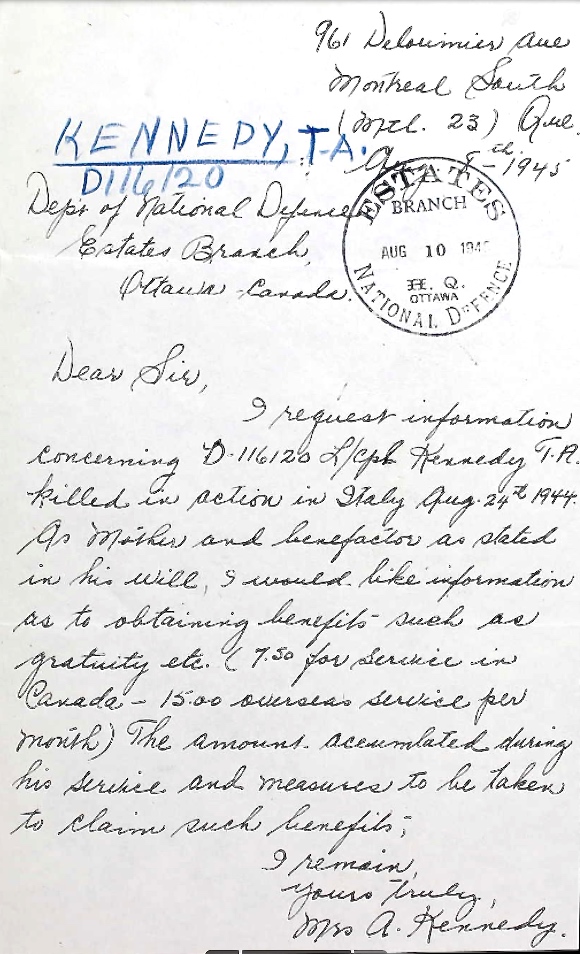 961 Delorimier Ave
Montreal South
(Mtl. 23) Que.
KENNEDY, T.A.
th. 1945
D116120
ESTATES
BRANCH
AUG 10 194
H. Q.
OTTAWA
NATIONAL DEFENCE
Dept of National Defence
Estates Branch,
Ottawa - Canada.
Dear Sir,
I request information
concerning D-116120 L/cpl Kennedy T.A.
killed in action in Italy Aug. 24th 1944.
As Mother and benefactor as stated
in his will, I would like information
as to obtaining benefits such as
gratuity etc. (7.50 for service in
Canada - 15.00 overseas service per
month) The amount. acumlated during
his service and measures to be taken
to claim such benefits,
I remain,
Yours truly,
Mrs A. Kennedy.